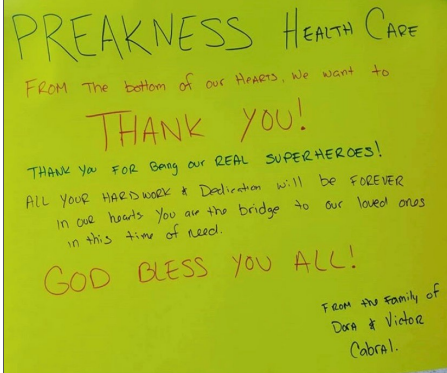 PREAKNESS HEALTH CARE
FROM The bottom of our HEARTS, We want to
THANK YOU!
THANK You FOR Being our REAL SUPERHEROES!
ALL YOUR HARDWORK & Dedication will be FOREVER
in our hearts you are the bridge to our loved ones
in this time of need.
GOD BLESS YOU ALL!
FROM the Family of
Dora & Victor
Cabral.